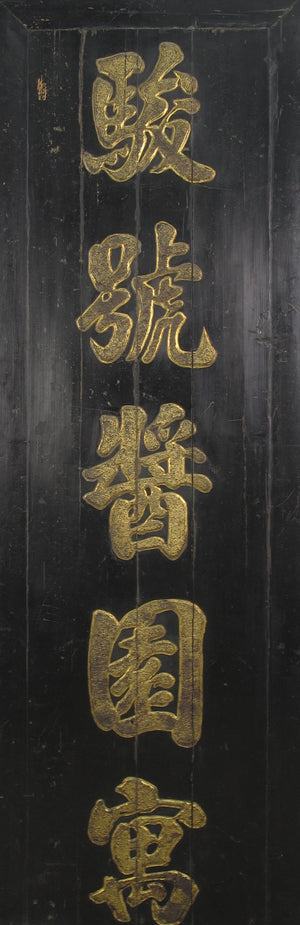 駿號醬園寓